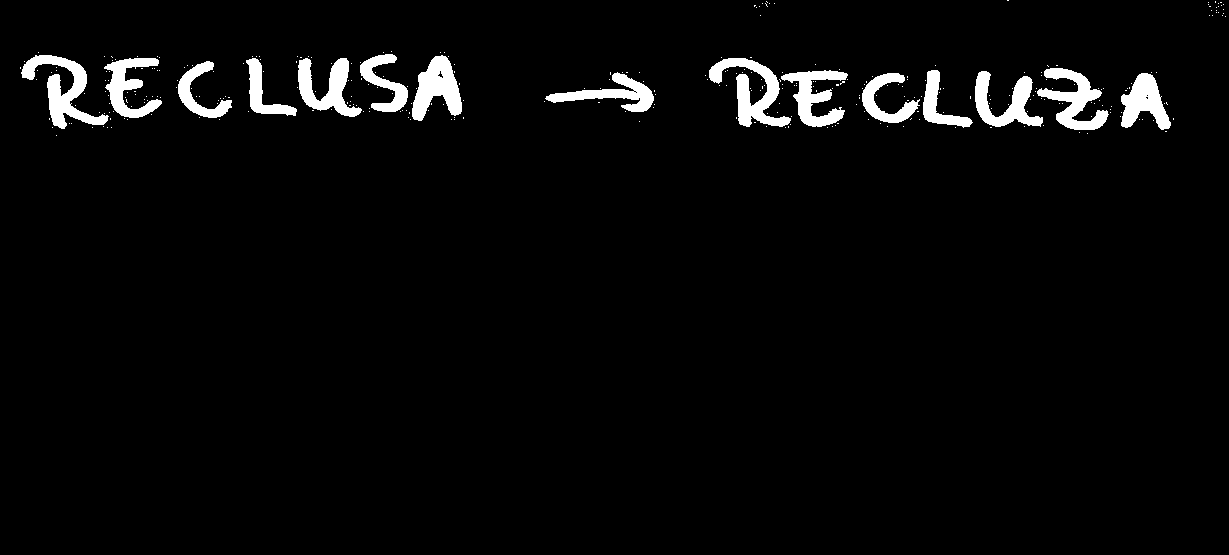 RECLUSA → RECLUZA